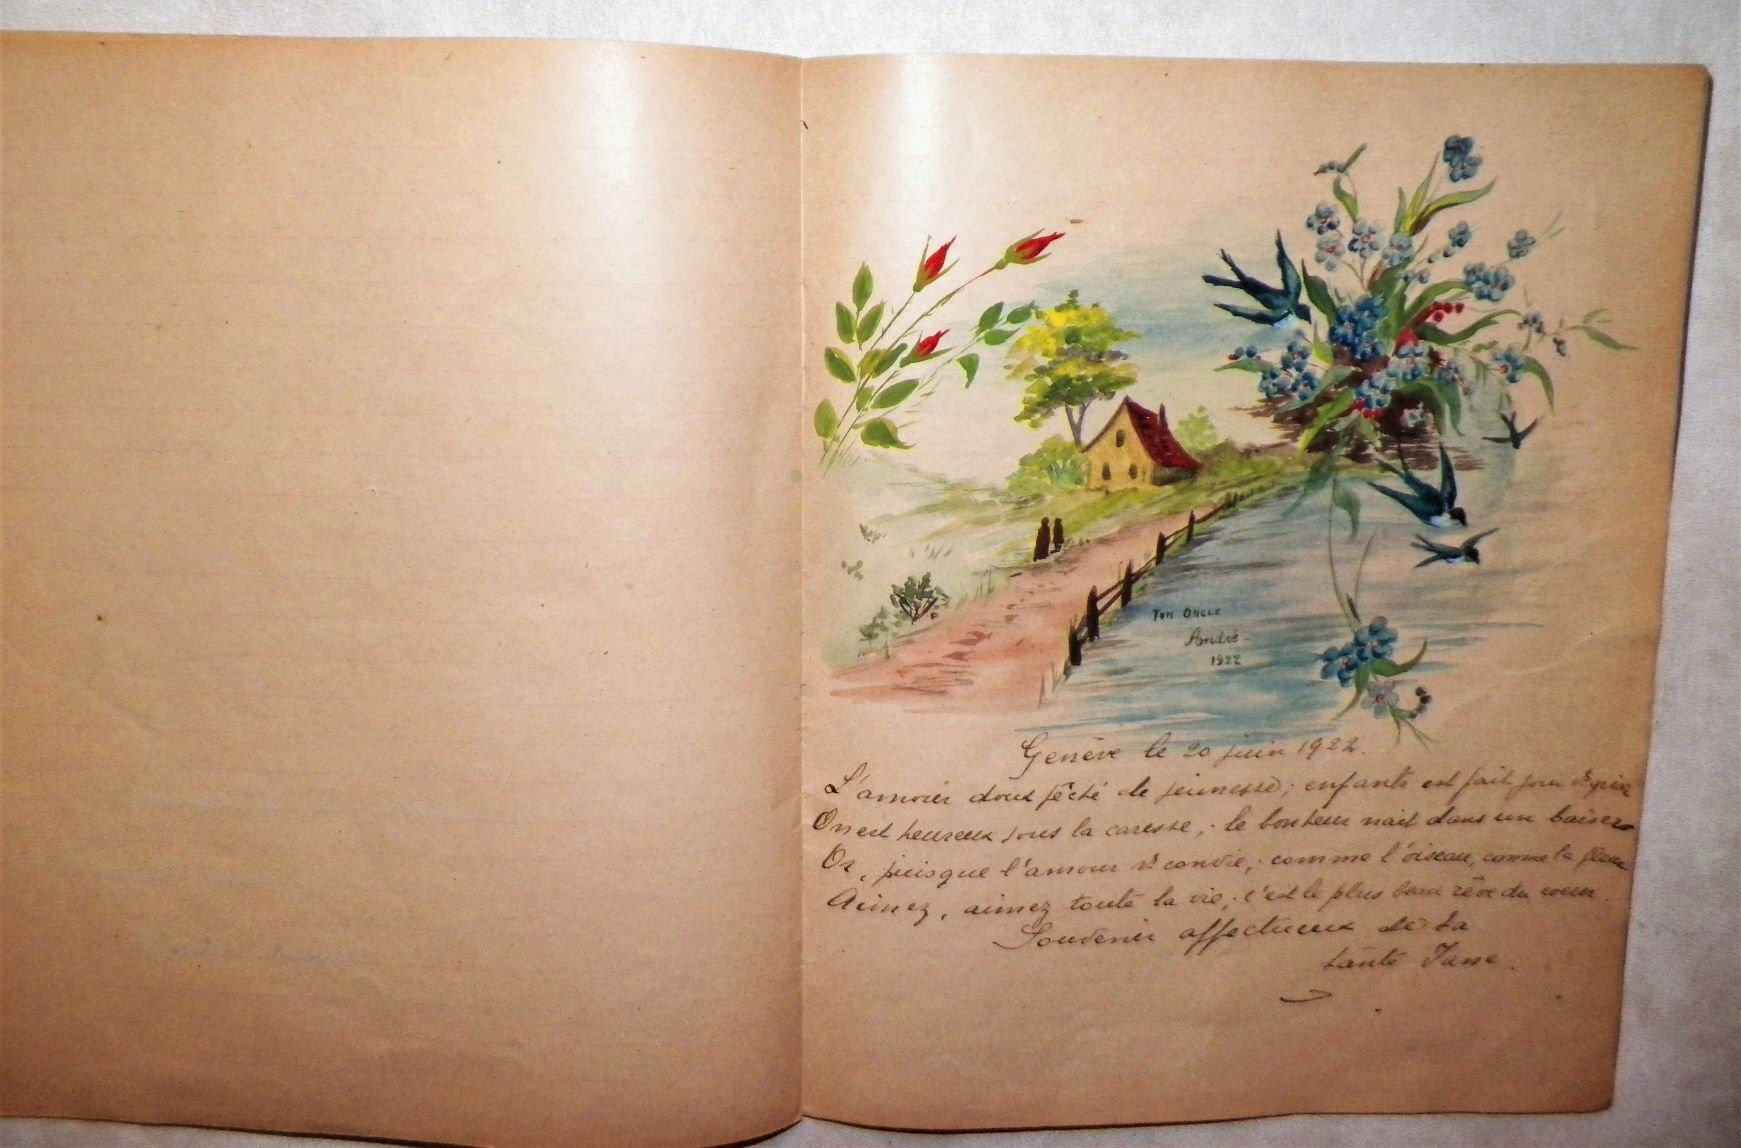 Ton Oncle
André
1922
Genève le 20 juin 1922.
L'amour doux péché de jeunesse; enfants est fait pour
On est heureux sous la caresse, le bonheur nait dans un baiser
Or, puisque l'amour vs convie, comme l'oiseau, comme la fleur
Aimez, aimez toute la vie, c'est le plus beau rêve du coeur.
Souvenir affectueux de ta
tante Jane.